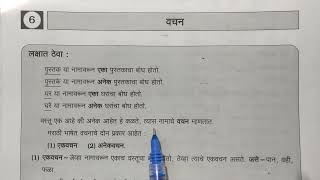 6
वचन
लक्षात ठेवा :
पुस्तक या नामावरून एका पुस्तकाचा बोध होतो.
पुस्तके या नामावरून अनेक पुस्तकांचा बोध होतो.
घर या नामावरून एका घराचा बोध होतो.
घरे या नामावरून अनेक घरांचा बोध होतो.
वस्तू एक आहे की अनेक आहेत हे कळते, त्यास नामाचे वचन म्हणतात.
मराठी भाषेत वचनाचे दोन प्रकार आहेत :
(1) एकवचन (2) अनेकवचन.
(1) एकवचन – जेव्हा नामावरून एकाच वस्तूचा होतो, तेव्हा त्याचे एकवचन असते. जसे – पान, वही,
फळा.